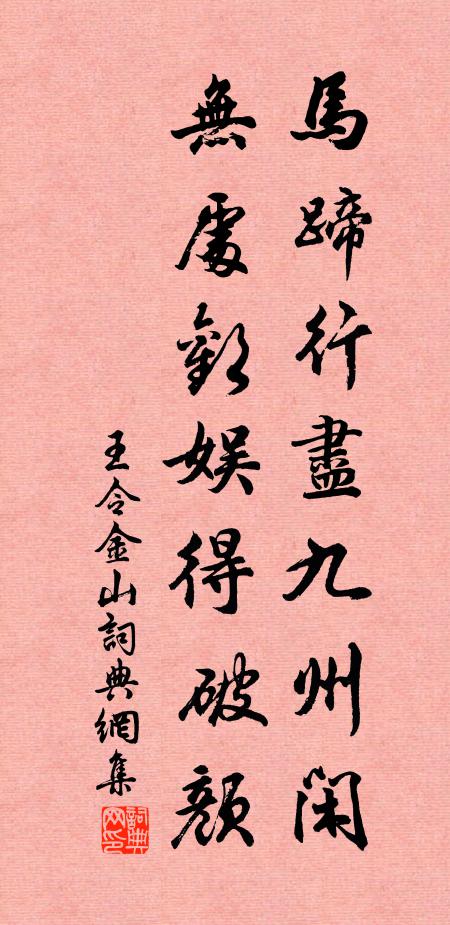 馬蹄行盡九州閑
無處歡娛得破顏
王令金山詞典網集
詞典网印